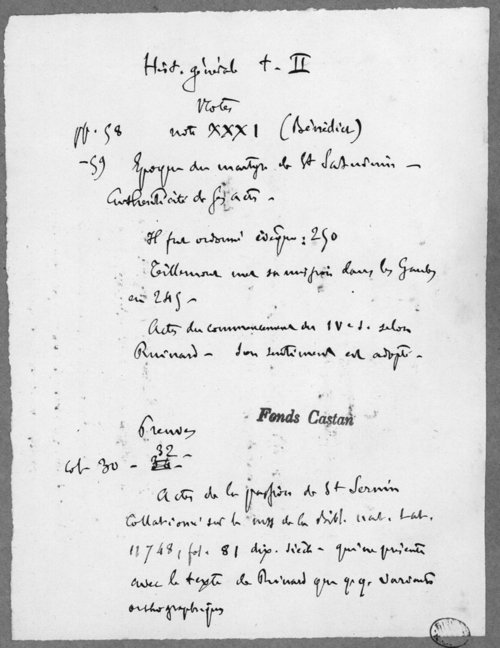 Hist. générale t. II
Notes
pp. 58 note XXXI (Bénédict)
-59 Epoque du martyre de St Saturnin -
Authenticité de ses actes -
Il fut ordonné évêque : 250
Tillemont met sa mission dans les Gaules
en 245 -
Actes du commencement du IVe s. selon
Ruinard - Son sentiment est adopté -
Fonds Castan
Preuves
32
Col. 30 - -
Actes de la passion de St Sernin
Collationné sur le mss de la Bibl. nat. Lat.
11748, fol. 81 dix. siècle - qui ne présente
avec le texte de Ruinard que qq. variantes
orthographiques